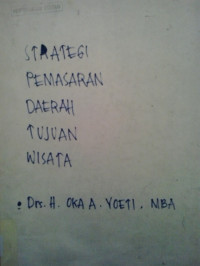 STRATEGI
PEMASARAN
DAERAH
TUJUAN
WISATA
• Drs. H. OKA A. YOETI, MBA